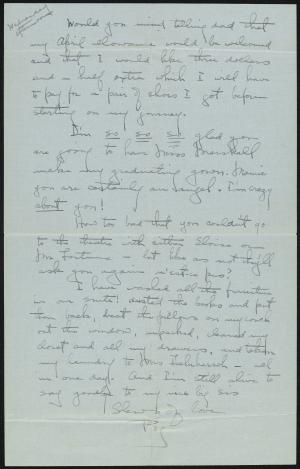 Wednesday
afternoon
Would you mind telling dad that
my April allowance would be welcomed
and that I would like three dollars
and a half extra which I will have
to pay for a pair of shoes I got before
starting on my journey.
I'm so, so, so glad you
are going to have
make my graduating gown.
you are certainly an angel. I'm crazy
about you!
How too bad that you couldn't go
to the theatre with either Eloise or
Mrs. Fortune – but like as not they'll
ask you again n'est-ce pas?
I have washed all the furniture
in our suite! dusted the books and put
them back, beat the pillows on my couch
out the window, unpacked, cleaned my
closet and all my drawers, and taken
my laundry to Miss – all
in one day. And I'm still alive to
say goodbye to my nice big sis
Love